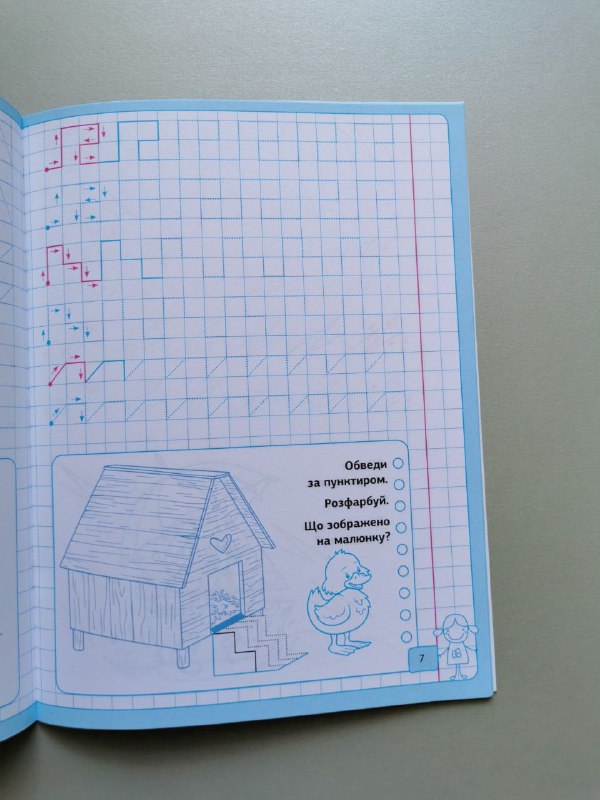 Обведи
за пунктиром.
Розфарбуй.
Що зображено
на малюнку?
7